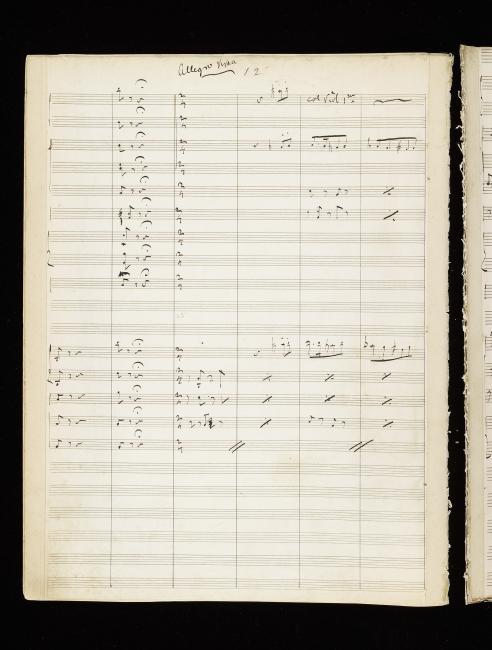 Allegro viva
12
col Viol 1mo